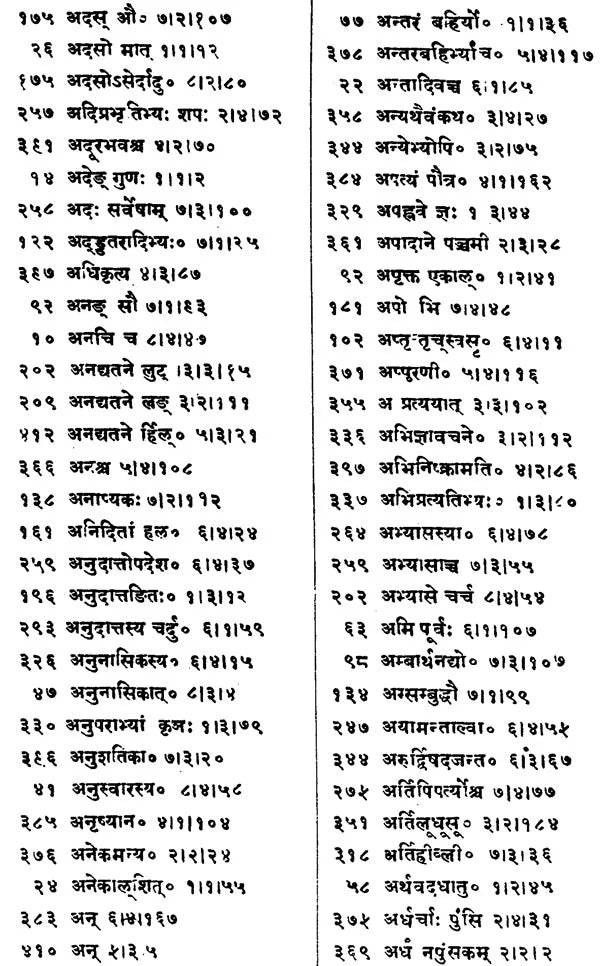 १७५ अदस् औ० ७।२।१०७
२६ अदसो मात् १।१।१२
१७५ अदसोऽसेर्दादु० ८।२।८०
२५७ अदिप्रभृतिभ्यः शपः २।४।७२
३९१ अदूरभवश्च ४।२।७०
१४ अदेङ् गुणः १।१।२
२५८ अदः सर्वेषाम् ७।३।१००
१२२ अद्ड्डतरादिभ्यः० ७।१।२५
३९७ अधिकृत्य ४।३।८७
९२ अनङ् सौ ७।१।९३
१० अनचि च ८।४।४७
२०२ अनद्यतने लुट् ।३।३।१५
२०९ अनद्यतने लङ् ३।२।१११
४१२ अनद्यतने र्हिल्० ५।३।२१
३६६ अनश्च ५।४।१०८
१३८ अनाप्यकः ७।२।११२
१६१ अनिदितां हल० ६।४।२४
२५९ अनुदात्तोपदेश० ६।४।३७
१९६ अनुदात्तङितः० १।३।१२
२९३ अनुदात्तस्य चर्दु० ६।१।५९
३२६ अनुनासिकस्य० ६।४।१५
४७ अनुनासिकात्० ८।३।४
३३० अनुपराभ्यां कृञः १।३।७९
३९६ अनुशतिका० ७।३।२०
४१ अनुस्वारस्य० ८।४।५८
३८५ अनृष्यान० ४।१।१०४
३७६ अनेकमन्य० २।२।२४
२४ अनेकाल्शित्० १।१।५५
३८३ अन् ६।४।१६७
४१० अन् ५।३।५
७७ अन्तरं बहिर्यो० १।१।३६
३७८ अन्तरबहिर्भ्यांच० ५।४।११७
२२ अन्तादिवच्च ६।१।८५
३५८ अन्यथैवंकथ० ३।४।२७
३४४ अन्येभ्योपि० ३।२।७५
३८४ अपत्यं पौत्र० ४।१।१६२
३२९ अपह्नवे ज्ञः १ ३।४४
३६१ अपादाने पञ्चमी २।३।२८
९२ अपृक्त एकाल्० १।२।४१
१८१ अपो भि ७।४।४८
१०२ अप्तृन्तृच्स्वसृ० ६।४।११
३७१ अप्पूरणी० ५।४।११६
३५५ अ प्रत्ययात् ३।३।१०२
३३६ अभिज्ञावचने० ३।२।११२
३९७ अभिनिष्क्रामति० ४।२।८६
३३७ अभिप्रत्यतिभ्यः० १।३।८०
२६४ अभ्यासस्या० ६।४।७८
२५९ अभ्यासाच्च ७।३।५५
२०२ अभ्यासे चर्च ८।४।५४
६३ अमि पूर्वः ६।१।१०७
९८ अम्बार्थनद्यो० ७।३।१०७
१३४ अम्सम्बुद्धौ ७।१।९९
२४७ अयामन्ताल्वा० ६।४।५५
३४४ अरुर्द्विषदजन्त० ६।३।६७
२७५ अर्तिपिपर्त्योश्च ७।४।७७
३५१ अर्तिलूधूसू० ३।२।१८४
३१८ अर्तिह्रीब्ली० ७।३।३६
५८ अर्थवदधातु० १।२।४५
३७५ अर्धर्चाः पुंसि २।४।३१
३६९ अर्धं नपुंसकम् २।२।२